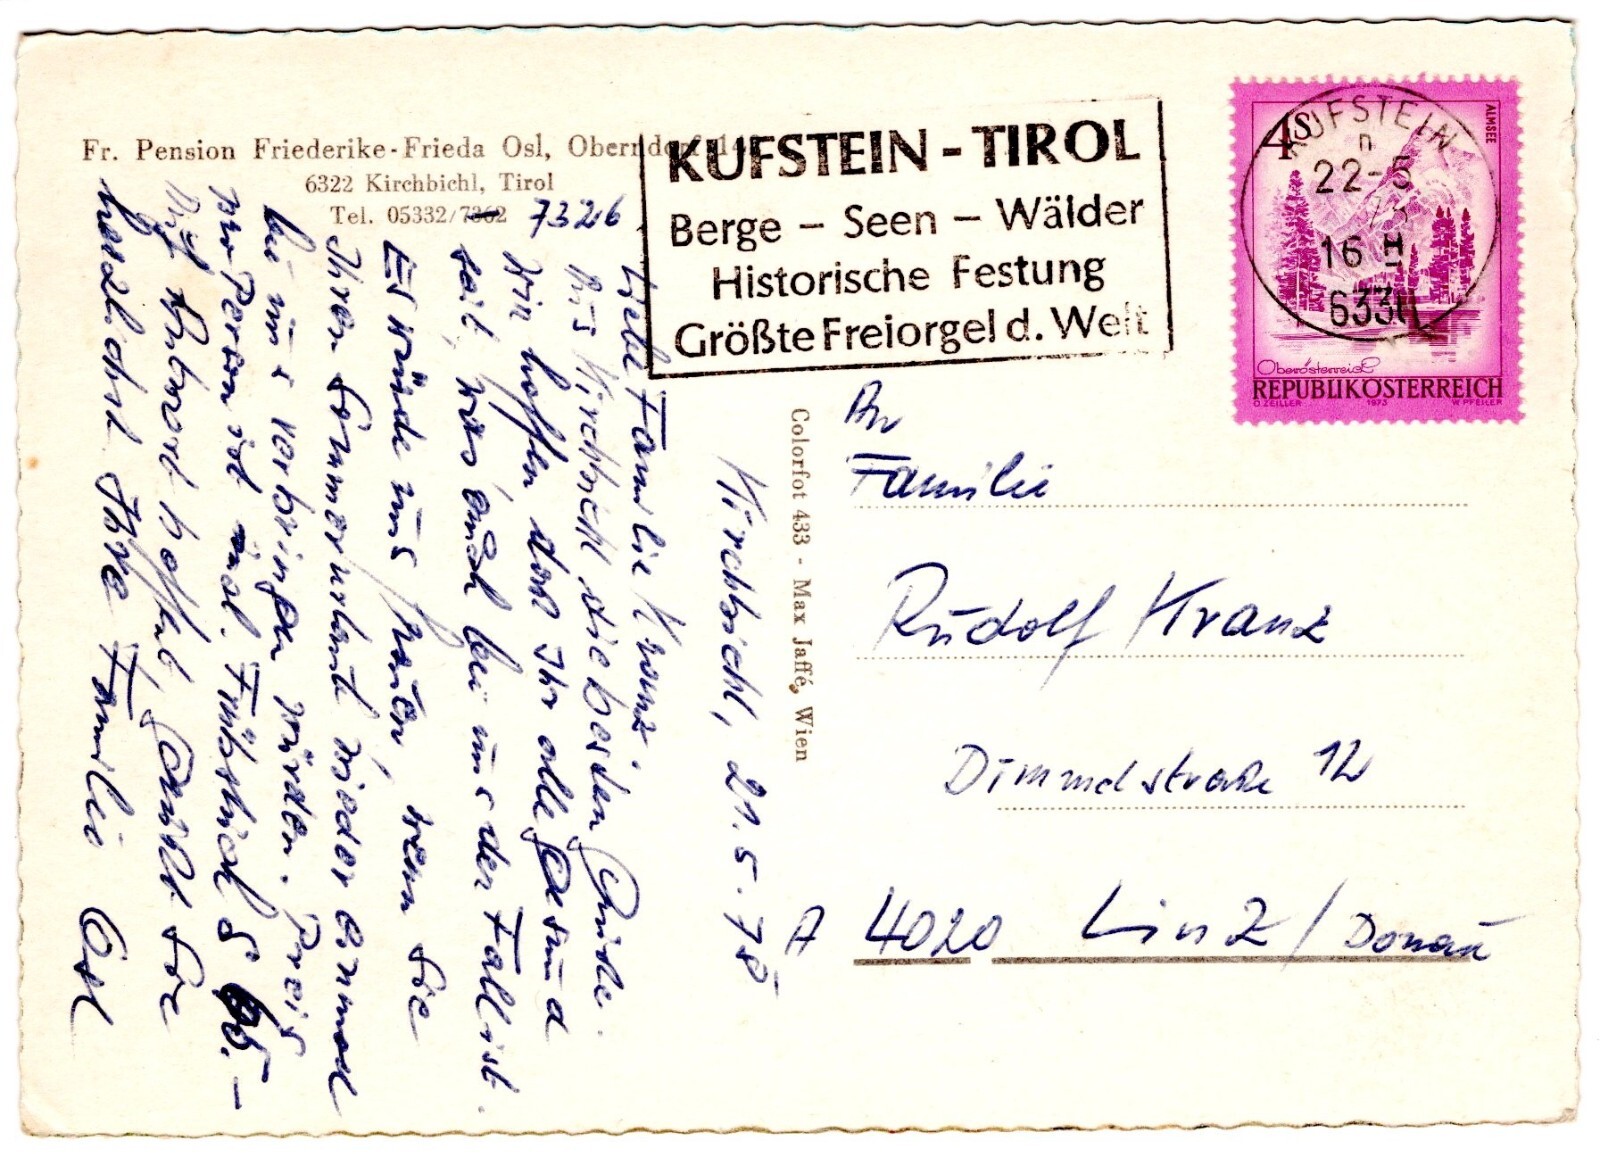 Fr. Pension Friederike-Frieda Osl, Oberndorf 14
6322 Kirchbichl, Tirol
Tel. 05332/7362 7326
KUFSTEIN - TIROL
Berge - Seen - Wälder
Historische Festung
Größte Freiorgel d. Welt
4 S
ALMSEE
KUFSTEIN
n
22-5
16 H
Oberösterreich
REPUBLIK ÖSTERREICH
O. ZEILLER 1973 W. PFEILER
Colorfot 433 - Max Jaffé, Wien
Kirchbichl, 21.5.78
Liebe Familie Kranz.
Aus Kirchbichl die besten Grüße.
Wir hoffen daß Ihr alle gesund
seit, was auch bei uns der Fall ist.
Es würde uns freuen, wenn Sie
Ihren Sommerurlaub wieder einmal
bei uns verbringen würden. Preis
pro Person ist mit Frühstück S 65.-
Auf Antwort hoffend, grüßt Sie
herzlichst Ihre Familie Osl
An
Familie
Rudolf Kranz
Dimmelstraße 12
A 4020 Linz/Donau